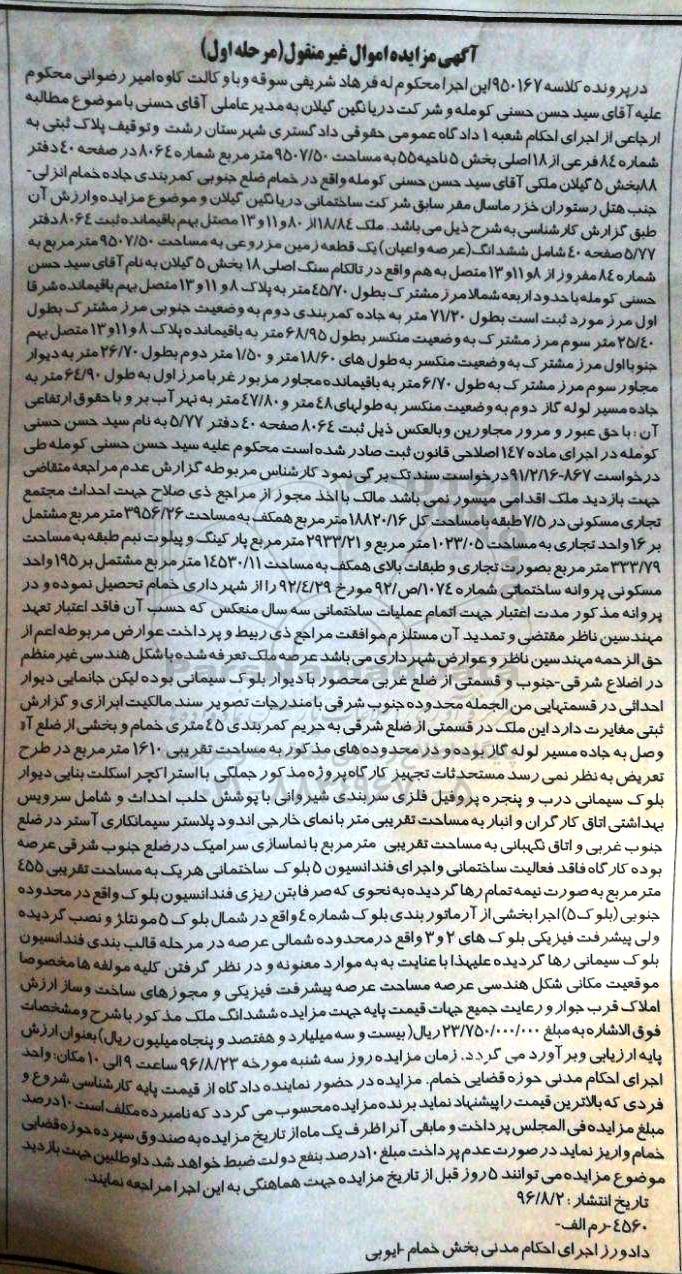 آگهی مزایده اموال غیر منقول (مرحله اول)
درپرونده کلاسه ۹۵۰۱۶۷ این اجرا محکوم له فرهاد شریفی سوقه و با وکالت کاوه امیر رضوانی محکوم
علیه آقای سید حسن حسنی کومله و شرکت دریا نگین گیلان به مدیر عاملی آقای حسنی با موضوع مطالبه
ارجاعی از اجرای احکام شعبه ۱ دادگاه عمومی حقوقی دادگستری شهرستان رشت وتوقیف پلاک ثبتی به
شماره ۸۴ فرعی از ۱۸ اصلی بخش ۵ ناحیه ۵۵ به مساحت ۹۵۰۷/۵۰ متر مربع شماره ۸۰۶۴ در صفحه ۴۰ دفتر
۸۸ بخش ۵ گیلان ملکی آقای سید حسن حسنی کومله واقع در خمام ضلع جنوبی کمربندی جاده خمام انزلی-
جنب هتل رستوران خزر ماسال مقر سابق شرکت ساختمانی دریا نگین گیلان و موضوع مزایده وارزش آن
طبق گزارش کارشناسی به شرح ذیل می باشد. ملک ۱۸/۸۴ از ۸۰ و ۱۱ و ۱۳ مصتل بهم باقیمانده ثبت ۸۰۶۴ دفتر
۵/۷۷ صفحه ۴۰ شامل ششدانگ (عرصه واعیان) یک قطعه زمین مزروعی به مساحت ۹۵۰۷/۵۰ مترمربع به
شماره ۸۴ مفروز از ۸ و ۱۱ و ۱۳ متصل به هم واقع در تالکام سنگ اصلی ۱۸ بخش ۵ گیلان به نام آقای سید حسن
حسنی کومله با حدود اربعه شمالا مرز مشترک بطول ۴۵/۷۰ متر به پلاک ۸ و ۱۱ و ۱۳ متصل بهم باقیمانده شرقا
اول مرز مورد ثبت است بطول ۷۱/۲۰ متر به جاده کمربندی دوم به وضعیت جنوبی مرز مشترک بطول
۲۵/۴۰ متر سوم مرز مشترک به وضعیت منکسر بطول ۶۸/۹۵ متر به باقیمانده پلاک ۸ و ۱۱ و ۱۳ متصل بهم
جنوبا اول مرز مشترک به وضعیت منکسر به طول های ۱۸/۶۰ متر و ۱/۵۰ متر دوم بطول ۲۶/۷۰ متر به دیوار
مجاور سوم مرز مشترک به طول ۶/۷۰ متر به باقیمانده مجاور مزبور غربا مرز اول به طول ۶۴/۹۰ متر به
جاده مسیر لوله گاز دوم به وضعیت منکسر به طولهای ۴۸ متر و ۴۷/۸۰ متر به نهر آب بر و با حقوق ارتفاعی
آن : با حق عبور و مرور مجاورین و بالعکس ذیل ثبت ۸۰۶۴ صفحه ۴۰ دفتر ۵/۷۷ به نام سید حسن حسنی
کومله در اجرای ماده ۱۴۷ اصلاحی قانون ثبت صادر شده است محکوم علیه سید حسن حسنی کومله طی
درخواست ۸۶۷-۹۱/۲/۱۶ درخواست سند تک برگی نمود کارشناس مربوطه گزارش عدم مراجعه متقاضی
جهت بازدید ملک اقدامی میسور نمی باشد مالک با اخذ مجوز از مراجع ذی صلاح جهت احداث مجتمع
تجاری مسکونی در ۷/۵ طبقه با مساحت کل ۱۸۸۲۰/۱۶ متر مربع همکف به مساحت ۳۹۵۶/۲۶ متر مربع مشتمل
بر ۱۶ واحد تجاری به مساحت ۱۰۲۳/۰۵ متر مربع و ۲۹۳۳/۲۱ متر مربع پارکینگ و پیلوت نیم طبقه به مساحت
۳۳۳/۷۹ متر مربع بصورت تجاری و طبقات بالای همکف به مساحت ۱۴۵۳۰/۱۱ متر مربع مشتمل بر ۱۹۵ واحد
مسکونی پروانه ساختمانی شماره ۱۰۷۴/ص/۹۲ مورخ ۹۲/۴/۲۹ را از شهرداری خمام تحصیل نموده و در
پروانه مذکور مدت اعتبار جهت اتمام عملیات ساختمانی سه سال منعکس که حسب آن فاقد اعتبار تعهد
مهندسین ناظر مقتضی و تمدید آن مستلزم موافقت مراجع ذی ربط و پرداخت عوارض مربوطه اعم از
حق الزحمه مهندسین ناظر و عوارض شهرداری می باشد عرصه ملک تعرفه شده با شکل هندسی غیر منظم
در اضلاع شرقی-جنوب و قسمتی از ضلع غربی محصور با دیوار بلوک سیمانی بوده لیکن جانمایی دیوار
احداثی در قسمتهایی من الجمله محدوده جنوب شرقی با مندرجات تصویر سند مالکیت ابرازی و گزارش
ثبتی مغایرت دارد این ملک در قسمتی از ضلع شرقی به حریم کمربندی ۴۵ متری خمام و بخشی از ضلع
وصل به جاده مسیر لوله گاز بوده و در محدوده های مذکور به مساحت تقریبی ۱۶۱۰ متر مربع در طرح
تعریض به نظر نمی رسد مستحدثات تجهیز کارگاه پروژه مذکور جملگی با استراکچر اسکلت بنایی دیوار
بلوک سیمانی درب و پنجره پروفیل فلزی سربندی شیروانی با پوشش حلب احداث و شامل سرویس
بهداشتی اتاق کارگران و انبار به مساحت تقریبی متر با نمای خارجی اندود پلاستر سیمانکاری آستر در ضلع
جنوب غربی و اتاق نگهبانی به مساحت تقریبی متر مربع با نماسازی سرامیک درضلع جنوب شرقی عرصه
بوده کارگاه فاقد فعالیت ساختمانی واجرای فندانسیون ۵ بلوک ساختمانی هریک به مساحت تقریبی ۴۵۵
متر مربع به صورت نیمه تمام رها گردیده به نحوی که صرفا بتن ریزی فندانسیون بلوک واقع در محدوده
جنوبی (بلوک ۵) اجرا بخشی از آرماتور بندی بلوک شماره ۴ واقع در شمال بلوک ۵ مونتاژ و نصب گردیده
ولی پیشرفت فیزیکی بلوک های ۲ و ۳ واقع درمحدوده شمالی عرصه در مرحله قالب بندی فندانسیون
بلوک سیمانی رها گردیده علیهذا با عنایت به به موارد معنونه و در نظر گرفتن کلیه مولفه ها مخصوصا
موقعیت مکانی شکل هندسی عرصه مساحت عرصه پیشرفت فیزیکی و مجوزهای ساخت وساز ارزش
املاک قرب جوار و رعایت جمیع جهات قیمت پایه جهت مزایده ششدانگ ملک مذکور با شرح ومشخصات
فوق الاشاره به مبلغ ۲۳/۷۵۰/۰۰۰/۰۰۰ ریال( بیست و سه میلیارد و هفتصد و پنجاه میلیون ریال) بعنوان ارزش
پایه ارزیابی وبر آورد می گردد. زمان مزایده روز سه شنبه مورخه ۹۶/۸/۲۳ ساعت ۹ الی ۱۰ مکان: واحد
اجرای احکام مدنی حوزه قضایی خمام. مزایده در حضور نماینده دادگاه از قیمت پایه کارشناسی شروع و
فردی که بالاترین قیمت را پیشنهاد نماید برنده مزایده محسوب می گردد که نامبرده مکلف است ۱۰ درصد
مبلغ مزایده فی المجلس پرداخت و مابقی آنرا ظرف یک ماه از تاریخ مزایده به صندوق سپرده حوزه قضایی
خمام واریز نماید در صورت عدم پرداخت مبلغ ۱۰ درصد بنفع دولت ضبط خواهد شد داوطلبین جهت بازدید
موضوع مزایده می توانند ۵ روز قبل از تاریخ مزایده جهت هماهنگی به این اجرا مراجعه نمایند.
تاریخ انتشار : ۹۶/۸/۲
۴۵۶۰-رم الف-
دادورز اجرای احکام مدنی بخش خمام -ایوبی